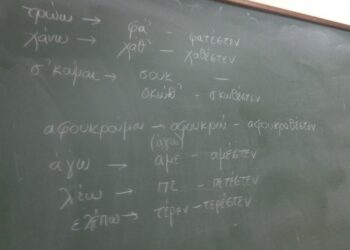 τρώω → φα' - φατέστεν
χάνω → χαθ' - χαθέστεν
σ'κούμαι → σουκ —
σκώθ' - σκωθέστεν
αφουκρούμαι → αφουκρού - αφουκραθέστεν
(άγω)
άγω → αμέ - αμέστεν
λέω → πέ - πέτεστεν
ελέπω → τέρεν - τερέστεν